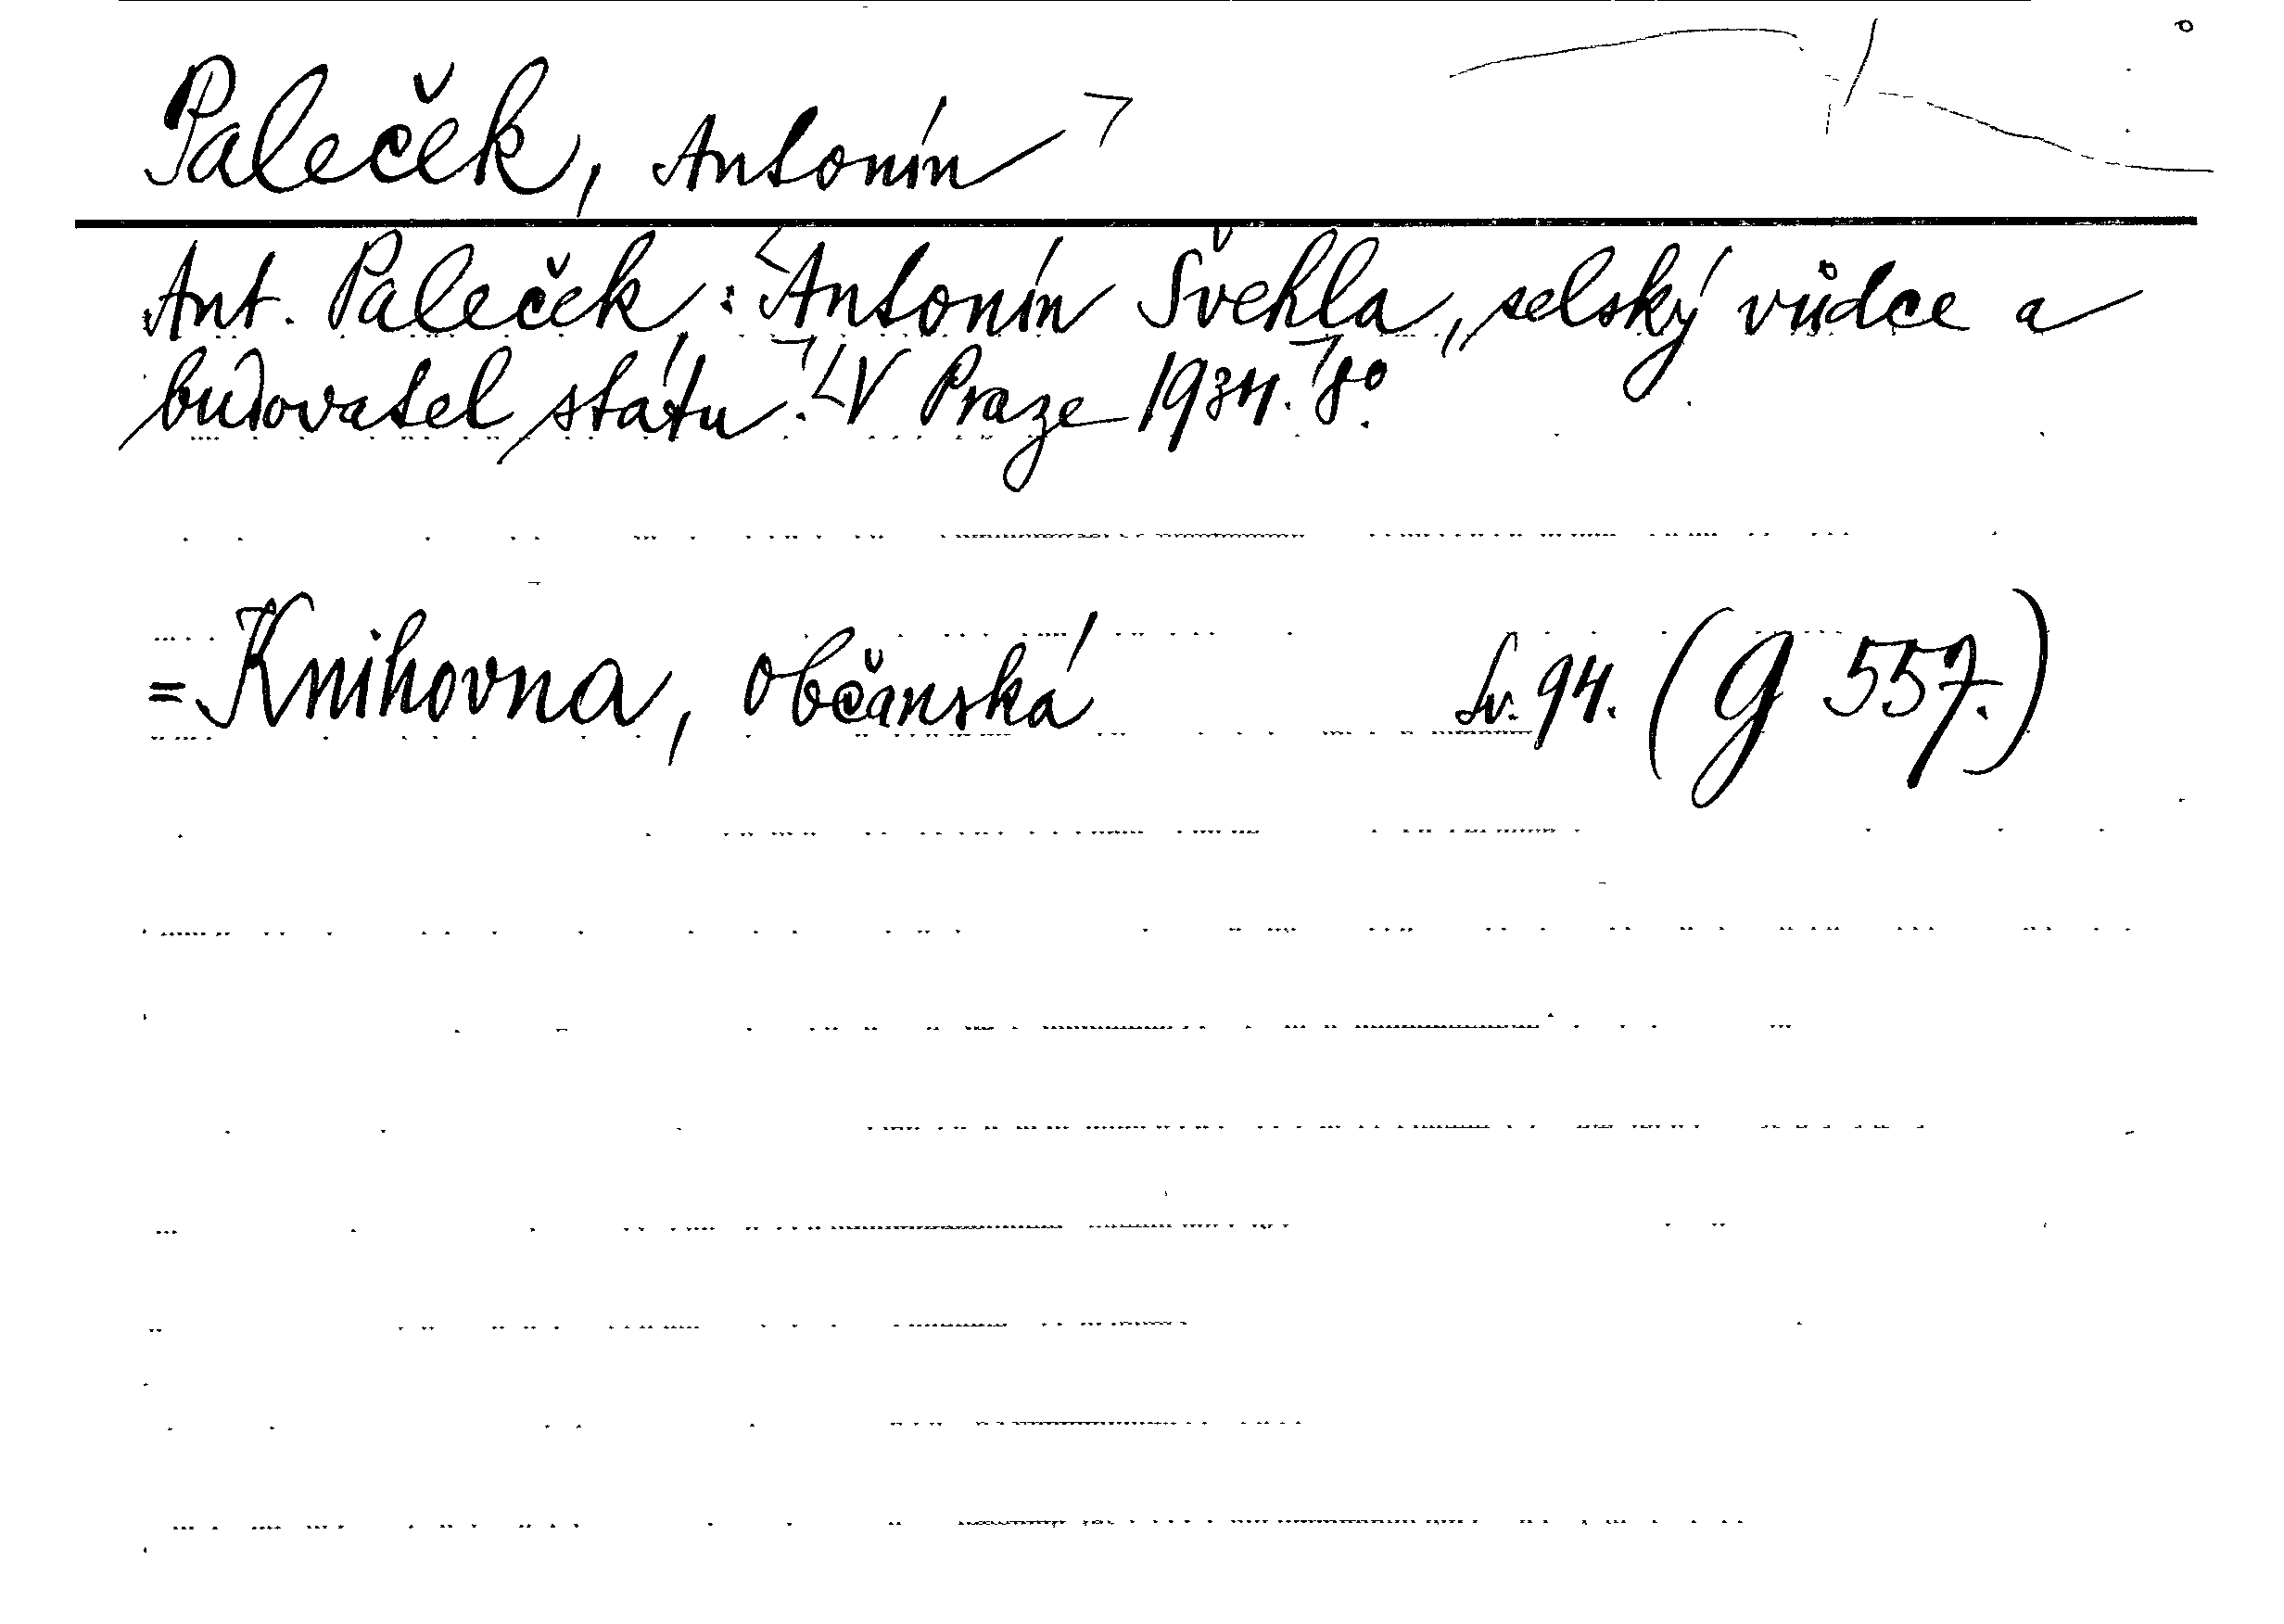 Paleček, Antonín
Ant. Paleček: Antonín Švehla, selský vůdce a
budovatel státu. V Praze 1934. 8°.
= Knihovna, občanská Sv. 94. (G 557.)